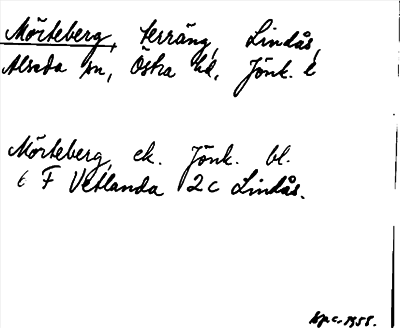 Mörteberg, terräng, Lindås,
Alseda sn, Östra hd, Jönk. l
Mörteberg, ek. Jönk. bl.
t F Vetlanda 2c Lindås.
1955.